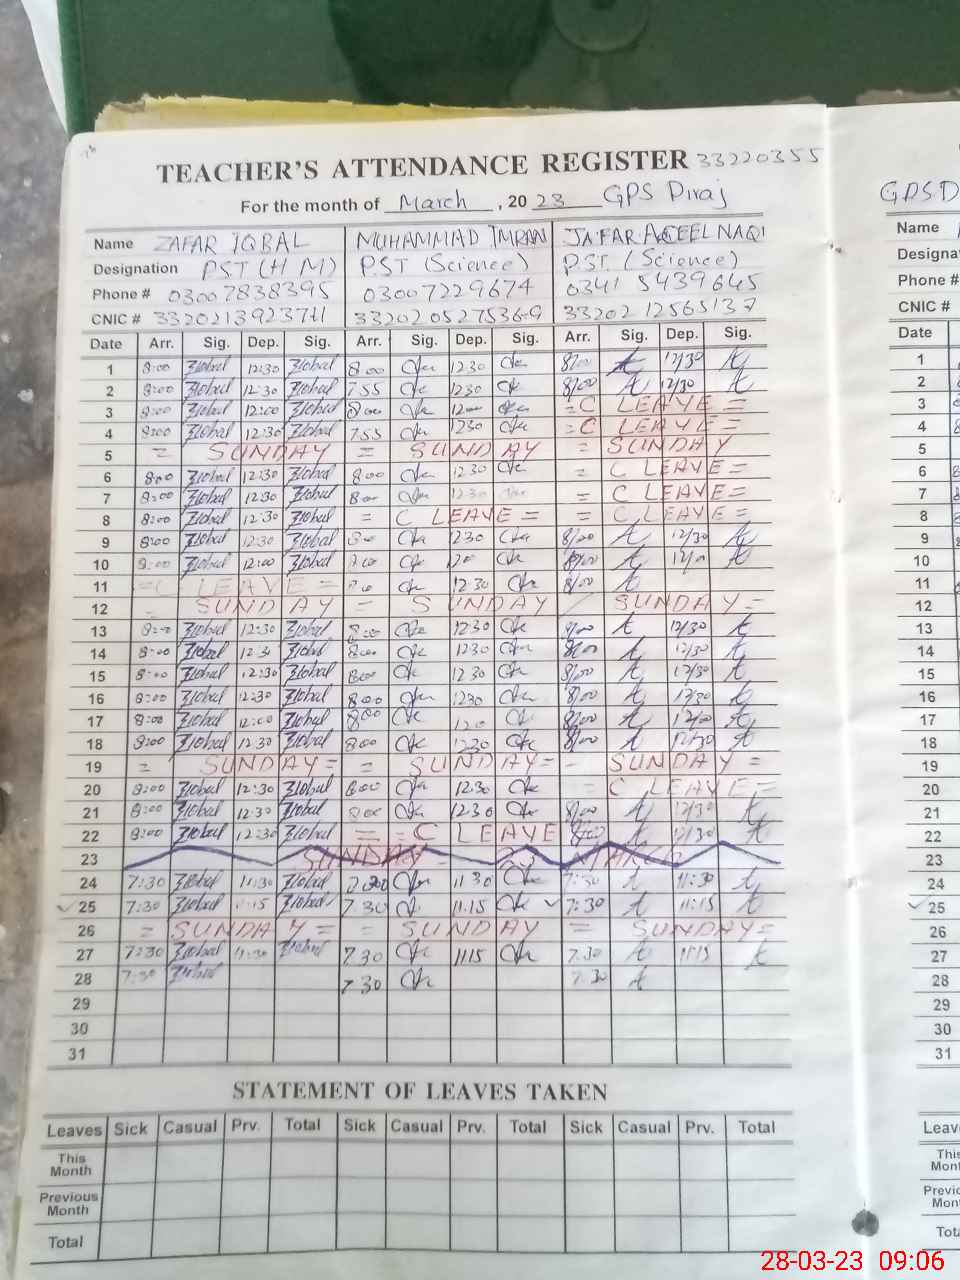 TEACHER'S ATTENDANCE REGISTER 33220355
For the month of March, 2023 GPS Piraj
Name ZAFAR IQBAL MUHAMMAD IMRAN JAFAR AQEEL NAQI
Designation PST (H M) PST (Science) PST (Science)
Phone # 03007838395 03007229674 0341 5439645
CNIC # 3320205275369 33202 12565137
Date Arr. Sig. Dep. Sig. Arr. Sig. Dep. Sig. Arr. Sig. Dep. Sig.
1 8:00 Iqbal 12:30 Iqbal 8 00 1230 8/00 12/30
2 8:00 Iqbal 12:30 Iqbal 7 55 1230 8/00 12/30
3 8:00 Iqbal 12:00 Iqbal 8 00 1200 = C LEAVE =
4 8:00 Iqbal 12:30 Iqbal 7 55 1230 = C LEAVE =
5 = SUNDAY = SUNDAY = SUNDAY
6 8:00 Iqbal 12:30 Iqbal 8 00 12 30 = C LEAVE =
7 8:00 Iqbal 12:30 Iqbal 8 00 12 30 = C LEAVE =
8 8:00 Iqbal 12:30 Iqbal = C LEAVE = = C LEAVE =
9 8:00 Iqbal 12:30 Iqbal 8 00 1230 8/00 12/30
10 8:00 Iqbal 12:00 Iqbal 8 00 8/00 12/00
11 = C LEAVE = 8 00 12 30 8/00
12 - SUNDAY = SUNDAY SUNDAY =
13 8:00 Iqbal 12:30 Iqbal 8:00 1230 8/00 12/30
14 8:00 Iqbal 12:30 Iqbal 8 00 1230 8/00 12/30
15 8:00 Iqbal 12:30 Iqbal 8 00 12 30 8/00 12/30
16 8:00 Iqbal 12:30 Iqbal 8 00 1230 8/00 12/30
17 8:00 Iqbal 12:00 Iqbal 8 00 8/00 12/00
18 8:00 Iqbal 12:30 Iqbal 8 00 1230 8/00 12/30
19 = SUNDAY = = SUNDAY = - SUNDAY =
20 8:00 Iqbal 12:30 Iqbal 8 00 12.30 C LEAVE =
21 8:00 Iqbal 12:30 Iqbal 8 00 12 30 8/00 12/30
22 8:00 Iqbal 12:30 Iqbal = = C LEAVE 8/00 12/30
23 23 MARCH
24 7:30 Iqbal 11:30 Iqbal 11 30 7:30 11:30
25 7:30 Iqbal 11:15 Iqbal 7.30 11.15 7:30 11:15
26 = SUNDAY = = SUNDAY = SUNDAY =
27 7:30 Iqbal 11:30 Iqbal 7.30 1115 7.30 11:15
28 7:30 Iqbal 7 30 7.30
29
30
31
STATEMENT OF LEAVES TAKEN
Leaves Sick Casual Prv. Total Sick Casual Prv. Total Sick Casual Prv. Total
This Month
Previous Month
Total
GPS D
Name
Designa
Phone #
CNIC #
Date
1
2
3
4
5
6
7
8
9
10
11
12
13
14
15
16
17
18
19
20
21
22
23
24
25
26
27
28
29
30
31
Leave
This
Mon
Previo
Mon
Tot
28-03-23 09:06